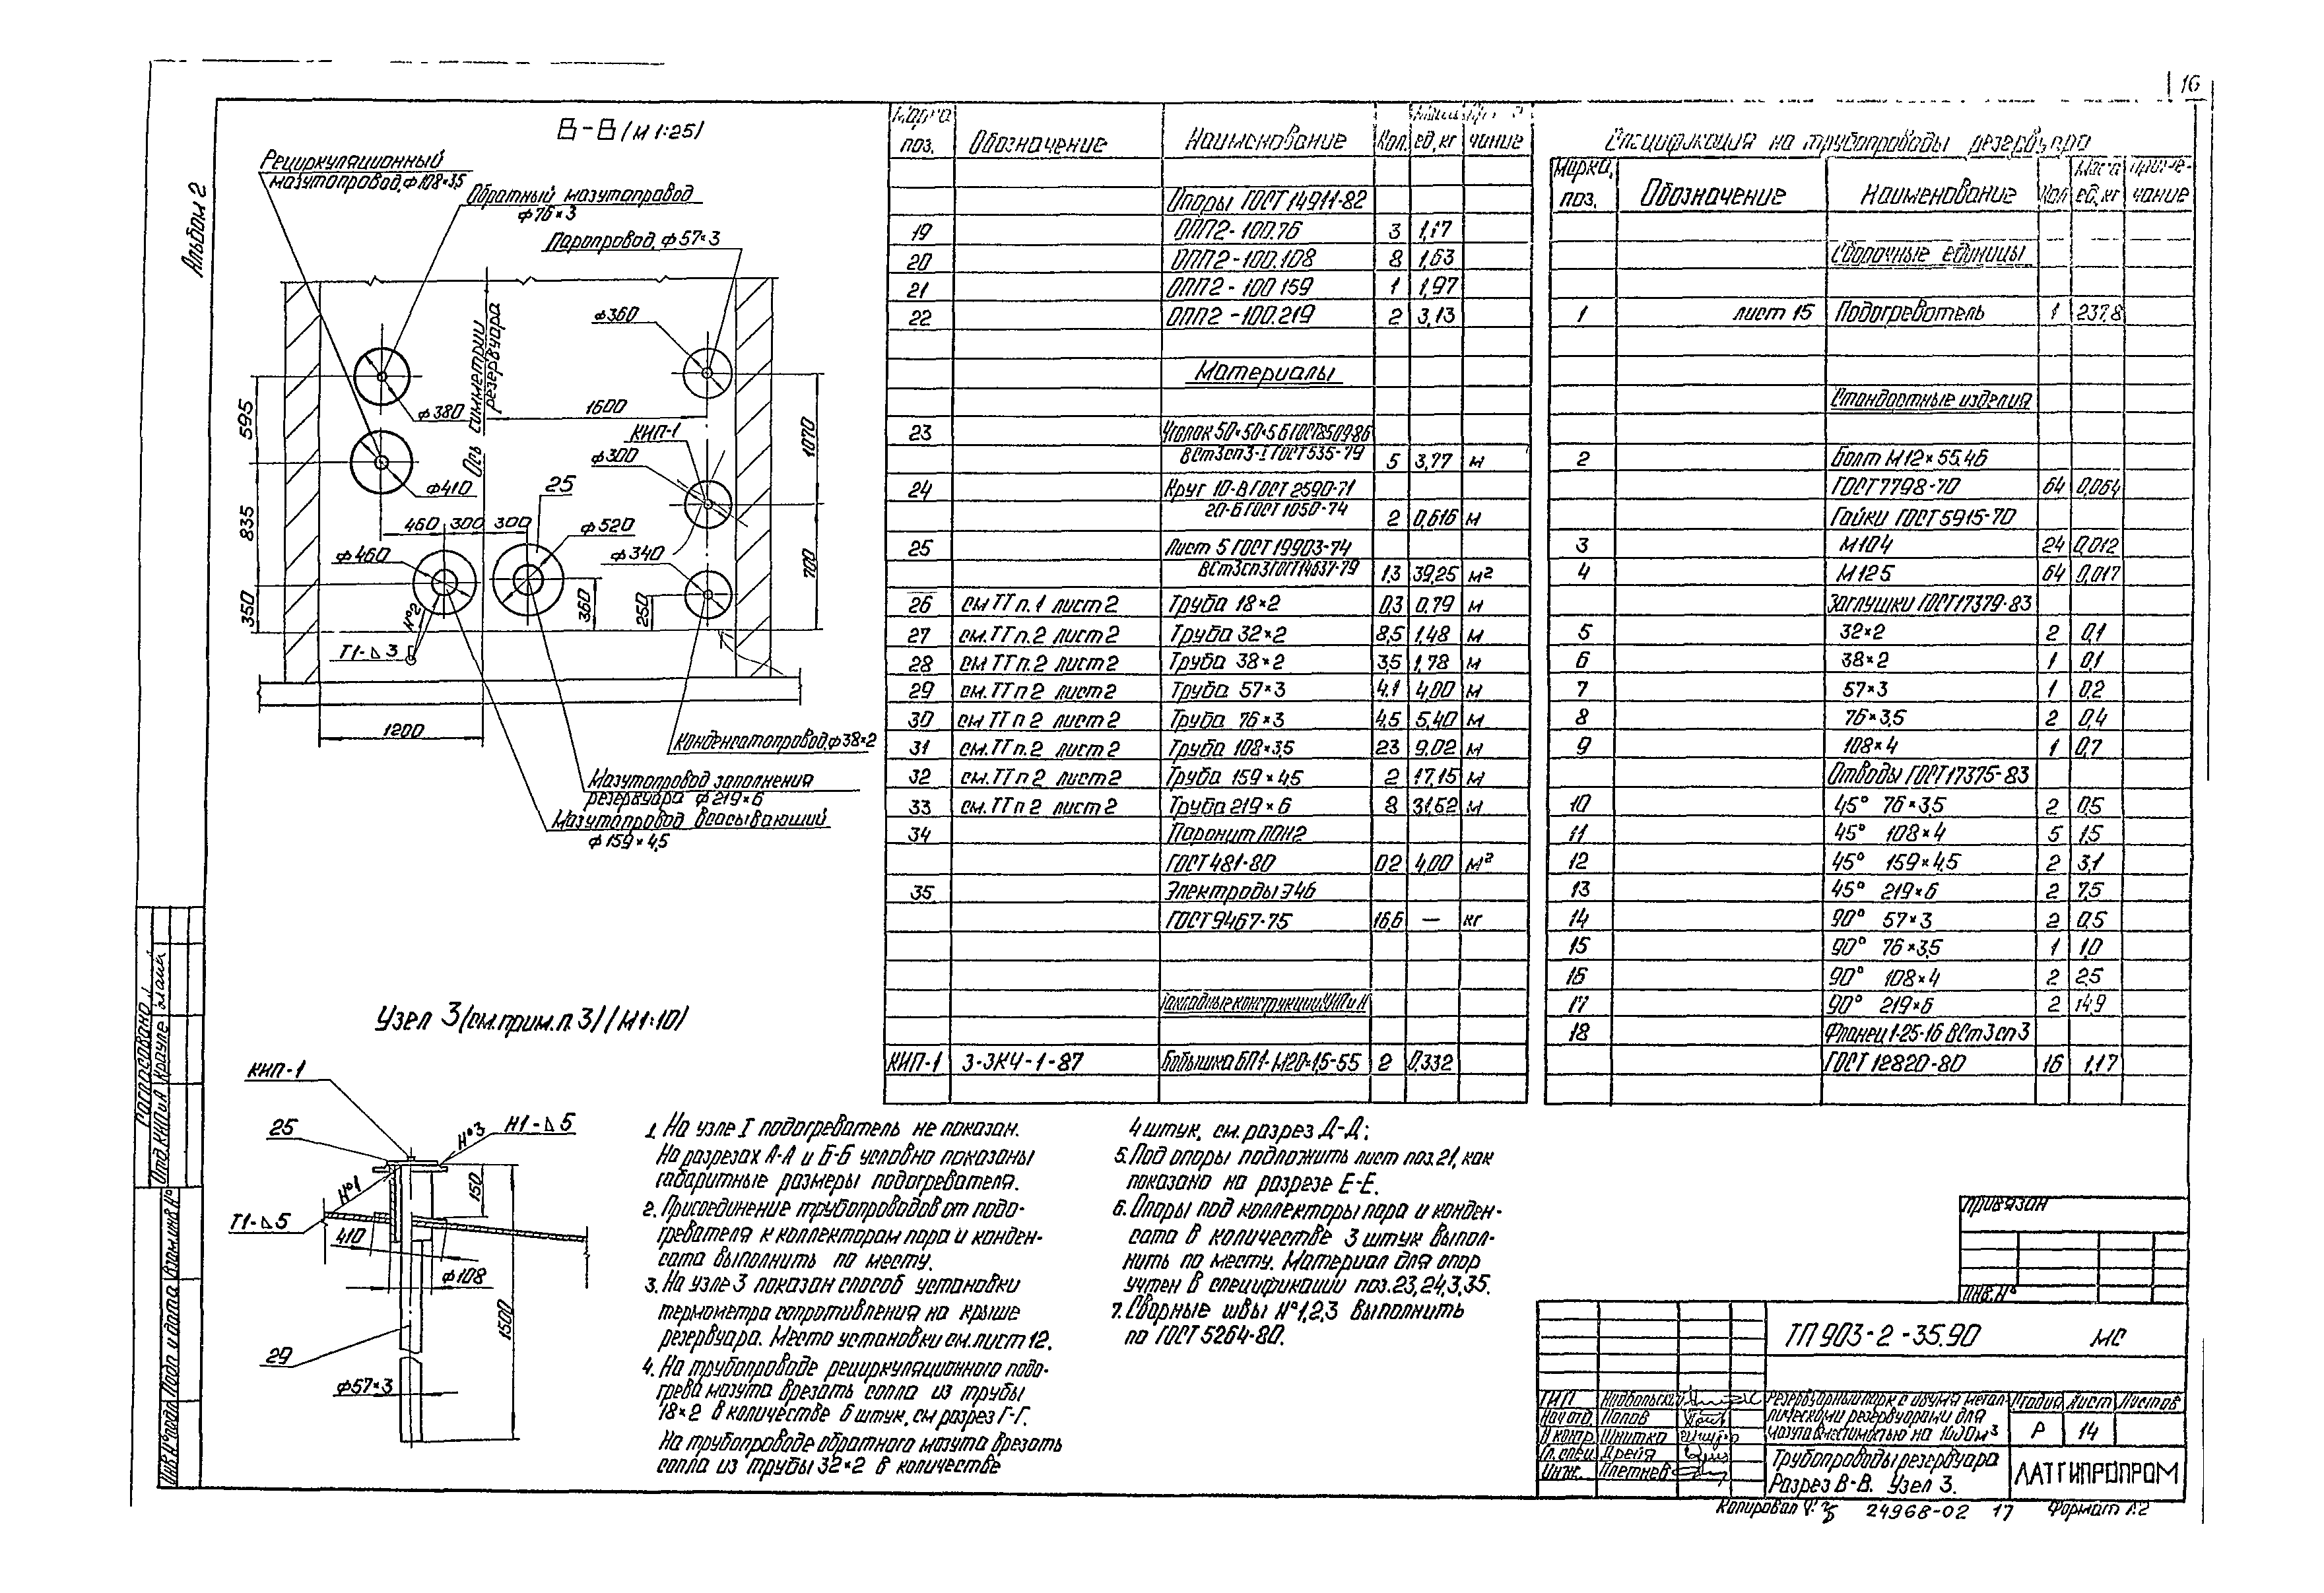 16
Альбом 2
В-В (М 1:25)
Рециркуляционный
мазутопровод, ф108×3,5
Обратный мазутопровод
ф76×3
Паропровод, ф57×3
Ось симметрии
резервуара
ф360
ф380
1600
КИП-1
ф300
ф410
25
460 300 300
ф520
ф460
ф340
595
835
350
1070
700
360
250
№2
Т1-△3
1200
Конденсатопровод, ф38×2
Мазутопровод заполнения
резервуара ф219×6
Мазутопровод всасывающий
ф159×4,5
Узел 3 (см. прим. п. 3) (М1:10)
КИП-1
25
№3
Н1-△5
№1
Т1-△5
410
150
ф108
1500
29
ф57×3
поз. Обозначение Наименование Кол. ед, кг чание
Опоры ГОСТ 14911-82
19 ОПП2-100.76 3 1,17
20 ОПП2-100.108 8 1,63
21 ОПП2-100 159 1 1,97
22 ОПП2-100.219 2 3,13
Материалы
23 Уголок 50×50×5 Б ГОСТ8509-86
ВСт3сп3-I ГОСТ535-79 5 3,77 м
24 Круг 10-В ГОСТ 2590-71
20-Б ГОСТ 1050-74 2 0,616 м
25 Лист 5 ГОСТ 19903-74
ВСт3сп3 ГОСТ14637-79 1,3 39,25 м²
26 см ТТ п. 1 лист 2 Труба 18×2 0,3 0,79 м
27 см. ТТ п. 2 лист 2 Труба 32×2 8,5 1,48 м
28 см ТТ п. 2 лист 2 Труба 38×2 3,5 1,78 м
29 см. ТТ п 2 лист 2 Труба 57×3 4,1 4,00 м
30 см ТТ п 2 лист 2 Труба 76×3 4,5 5,40 м
31 см. ТТ п. 2 лист 2 Труба 108×3,5 23 9,02 м
32 см. ТТ п 2 лист 2 Труба 159×4,5 2 17,15 м
33 см. ТТ п 2 лист 2 Труба 219×6 8 31,52 м
34 Паронит ПОН2
ГОСТ 481-80 0,2 4,00 м²
35 Электроды Э46
ГОСТ 9467-75 16,6 — кг
Закладные конструкции КИП и А
КИП-1 3-ЗКЧ-1-87 Бобышка БП1-М20×1,5-55 2 0,332
Спецификация на трубопроводы резервуара
Марка, Масса Приме-
поз. Обозначение Наименование Кол ед, кг чание
Сборочные единицы
1 лист 15 Подогреватель 1 237,8
Стандартные изделия
2 Болт М12×55.46
ГОСТ 7798-70 64 0,064
Гайки ГОСТ 5915-70
3 М10.4 24 0,012
4 М12.5 64 0,017
Заглушки ГОСТ17379-83
5 32×2 2 0,1
6 38×2 1 0,1
7 57×3 1 0,2
8 76×3,5 2 0,4
9 108×4 1 0,7
Отводы ГОСТ17375-83
10 45° 76×3,5 2 0,5
11 45° 108×4 5 1,5
12 45° 159×4,5 2 3,1
13 45° 219×6 2 7,5
14 90° 57×3 2 0,5
15 90° 76×3,5 1 1,0
16 90° 108×4 2 2,5
17 90° 219×6 2 14,9
18 Фланец 1-25-16 ВСт3сп3
ГОСТ 12820-80 16 1,17
1. На узле I подогреватель не показан.
На разрезах А-А и Б-Б условно показаны
габаритные размеры подогревателя.
2. Присоединение трубопроводов от подо-
гревателя к коллекторам пара и конден-
сата выполнить по месту.
3. На узле 3 показан способ установки
термометра сопротивления на крыше
резервуара. Место установки см. лист 12.
4. На трубопроводе рециркуляционного подо-
грева мазута врезать сопла из трубы
18×2 в количестве 6 штук, см разрез Г-Г.
На трубопроводе обратного мазута врезать
сопла из трубы 32×2 в количестве
4 штук, см. разрез Д-Д;
5. Под опоры подложить лист поз. 21, как
показано на разрезе Е-Е.
6. Опоры под коллекторы пара и конден-
сата в количестве 3 штук выпол-
нить по месту. Материал для опор
учтен в спецификации поз. 23, 24, 3, 35.
7. Сварные швы №1,2,3 выполнить
по ГОСТ 5264-80.
Привязан
Инв. №
ТП 903-2-35.90 МС
ГИП
Нач отд. Попов
Н контр. Шнитко
Гл. спец. Дрейя
Инж. Плетнев
Резервуарный парк с двумя метал-
лическими резервуарами для
мазута вместимостью на 1000 м³
Стадия Лист Листов
Р 14
Трубопроводы резервуара
Разрез В-В. Узел 3.
ЛАТГИПРОПРОМ
Копировал 24968-02 17 Формат А2
Согласовано
Отд. КИПиА Краупе
Инв № подл Подп и дата Взам. инв №